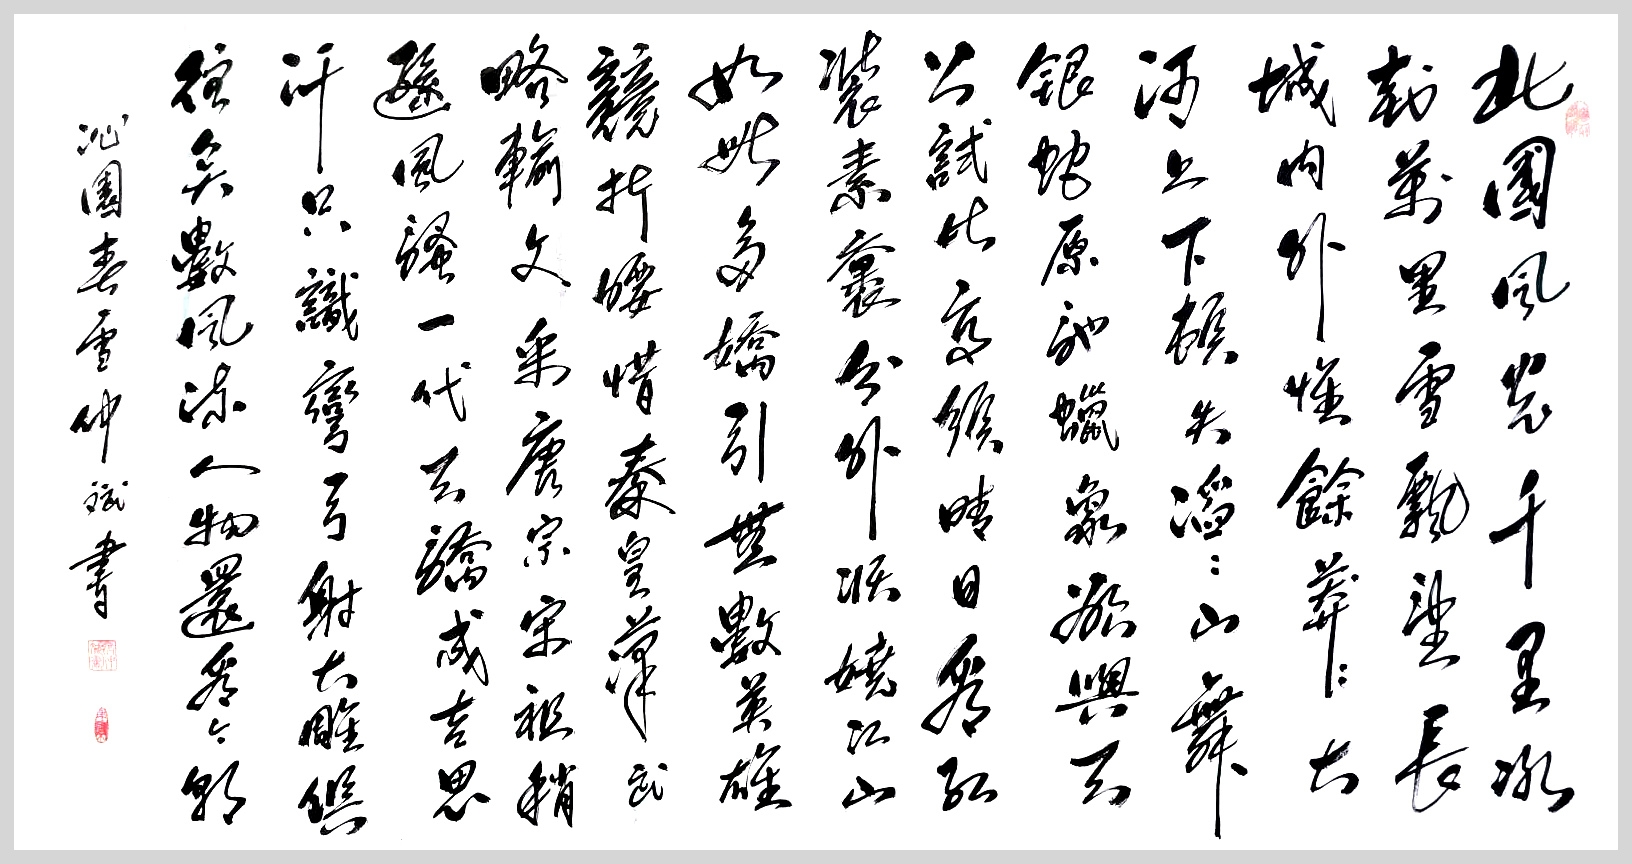 北國風光千里冰
封萬里雪飄望長
城內外惟餘莽〻大
河上下頓失滔〻山舞
銀蛇原馳蠟象欲與天
公試比高須晴日看紅
裝素裹分外妖嬈江山
如此多嬌引無數英雄
競折腰惜秦皇漢武
略輸文采唐宗宋祖稍
遜風騷一代天驕成吉思
汗只識彎弓射大雕俱
往矣數風流人物還看今朝
沁園春雪仲斌書